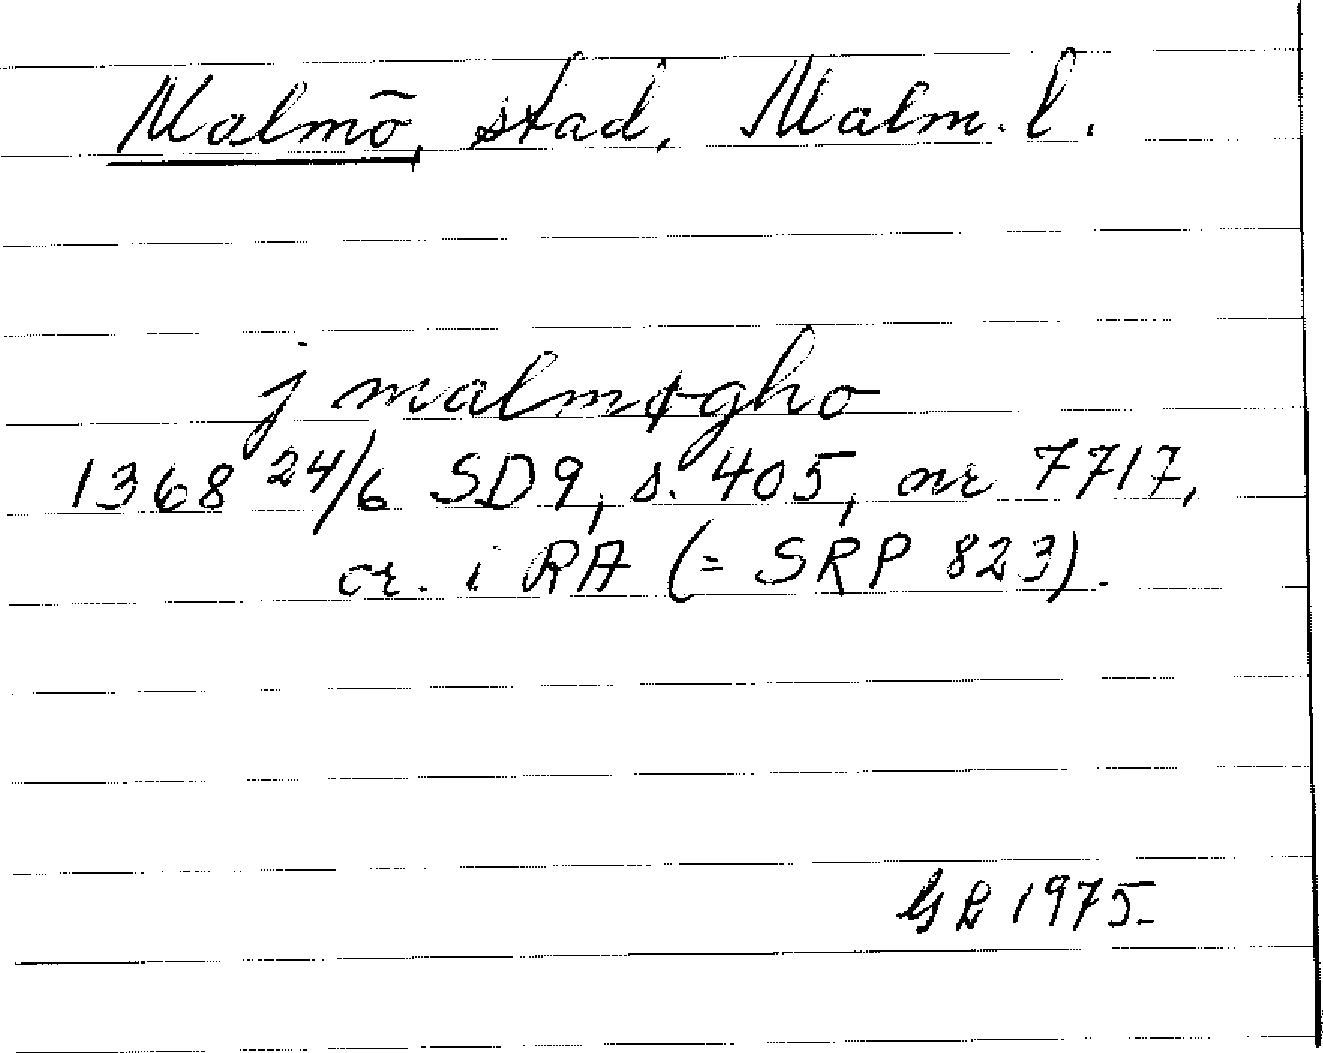 Malmö, stad, Malm. l.
j malmøgho
1368 24/6 SD9, s. 405, nr 7717,
or. i RA (= SRP 823).
GL 1975.